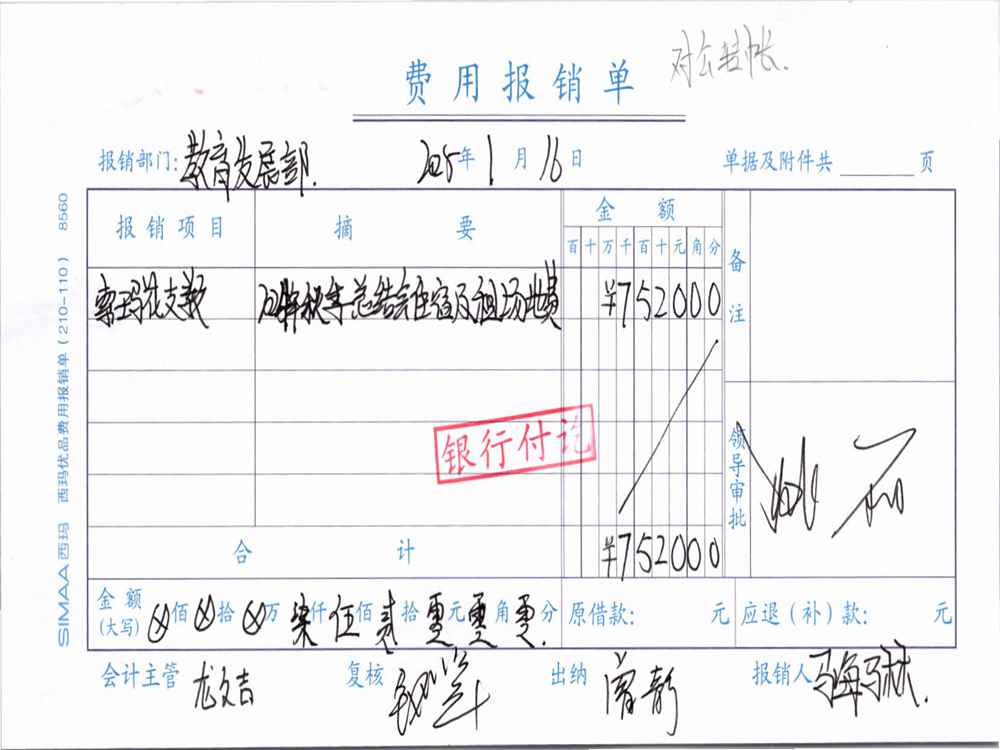 对公转帐.
费用报销单
报销部门: 教育发展部. 2025年1月16日 单据及附件共 页
报销项目 摘要 金额 备注
百十万千百十元角分
索玛花支教 秋季总结会住宿及租场地费 ¥752000
银行付讫
领导审批
合计 ¥752000
金额(大写) ⊗佰⊗拾⊗万柒仟伍佰贰拾零元零角零分. 原借款: 元 应退(补)款: 元
会计主管 龙文吉 复核 出纳 唐静 报销人 马海马秋.
SIMAA西玛 西玛优品费用报销单(210-110) 8560